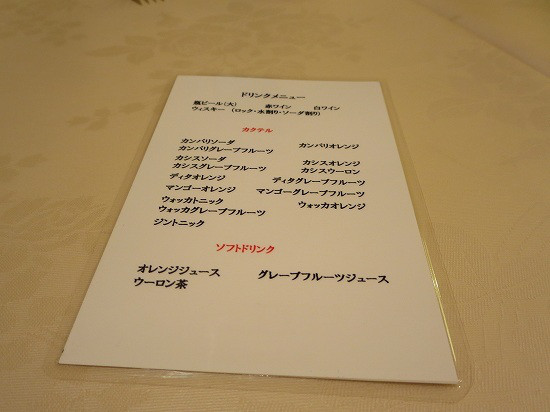 ドリンクメニュー
瓶ビール(大) 赤ワイン 白ワイン
ウィスキー (ロック・水割り・ソーダ割り)
カクテル
カンパリソーダ カンパリオレンジ
カンパリグレープフルーツ
カシスソーダ カシスオレンジ
カシスグレープフルーツ カシスウーロン
ディタオレンジ ディタグレープフルーツ
マンゴーオレンジ マンゴーグレープフルーツ
ウォッカトニック ウォッカオレンジ
ウォッカグレープフルーツ
ジントニック
ソフトドリンク
オレンジジュース グレープフルーツジュース
ウーロン茶